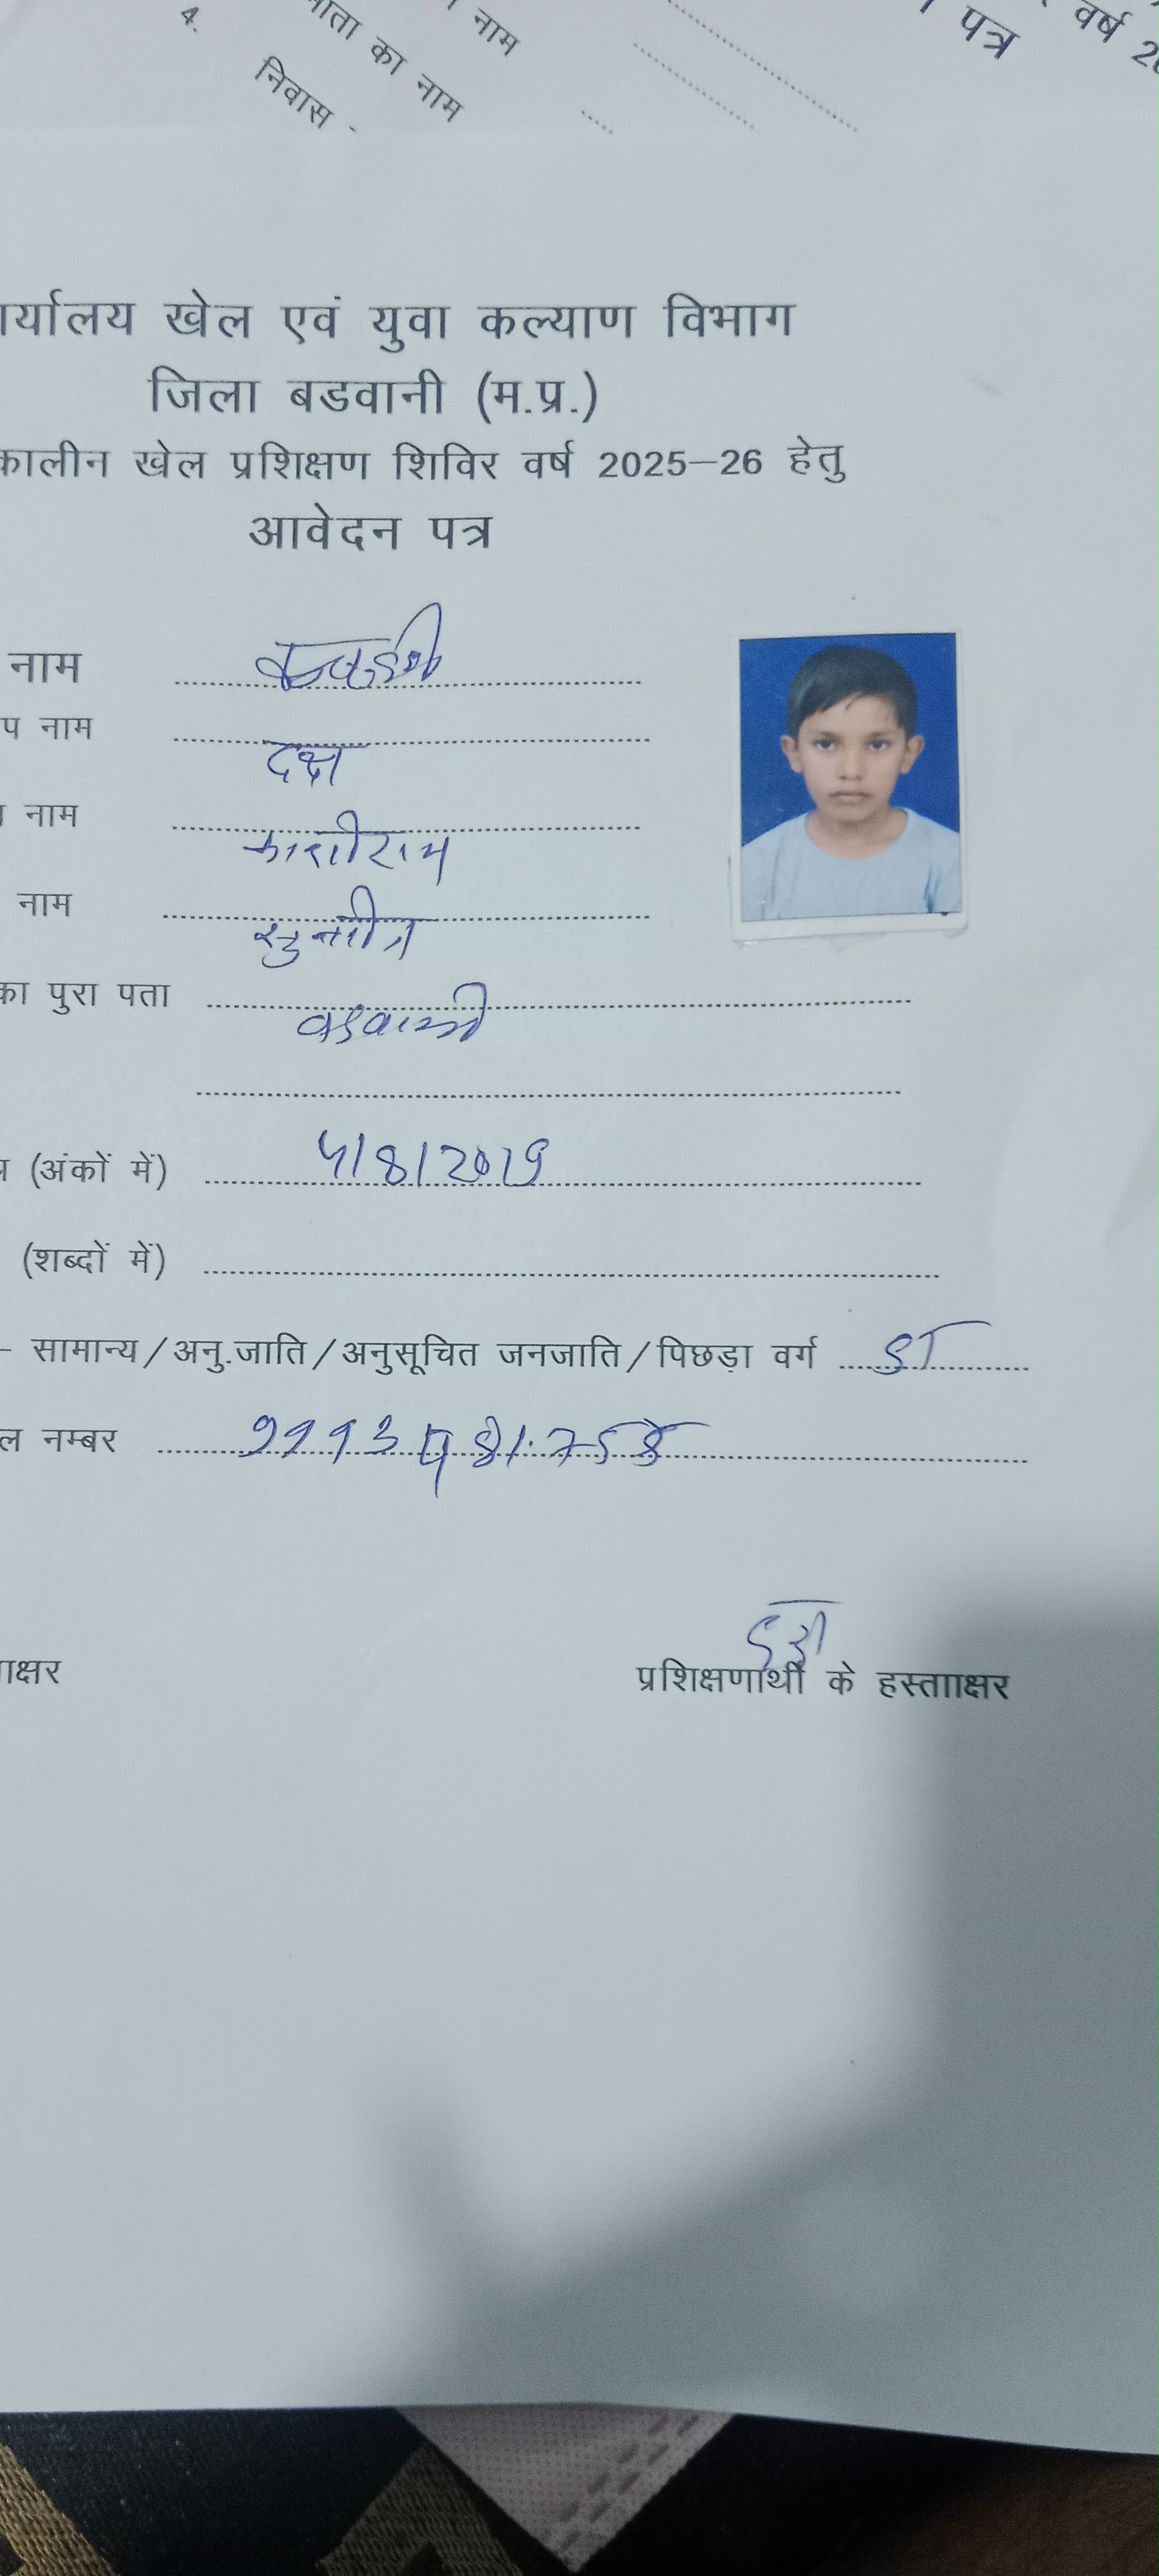 4.
माता का नाम
नाम
निवास -
पत्र
वर्ष 20
र्यालय खेल एवं युवा कल्याण विभाग
जिला बडवानी (म.प्र.)
कालीन खेल प्रशिक्षण शिविर वर्ष 2025–26 हेतु
आवेदन पत्र
नाम
प नाम दक्ष
नाम काशीराम
नाम
का पुरा पता बडवानी
(अंकों में) 5/8/2019
(शब्दों में)
– सामान्य/अनु.जाति/अनुसूचित जनजाति/पिछड़ा वर्ग ST
ल नम्बर
ाक्षर प्रशिक्षणार्थी के हस्तााक्षर